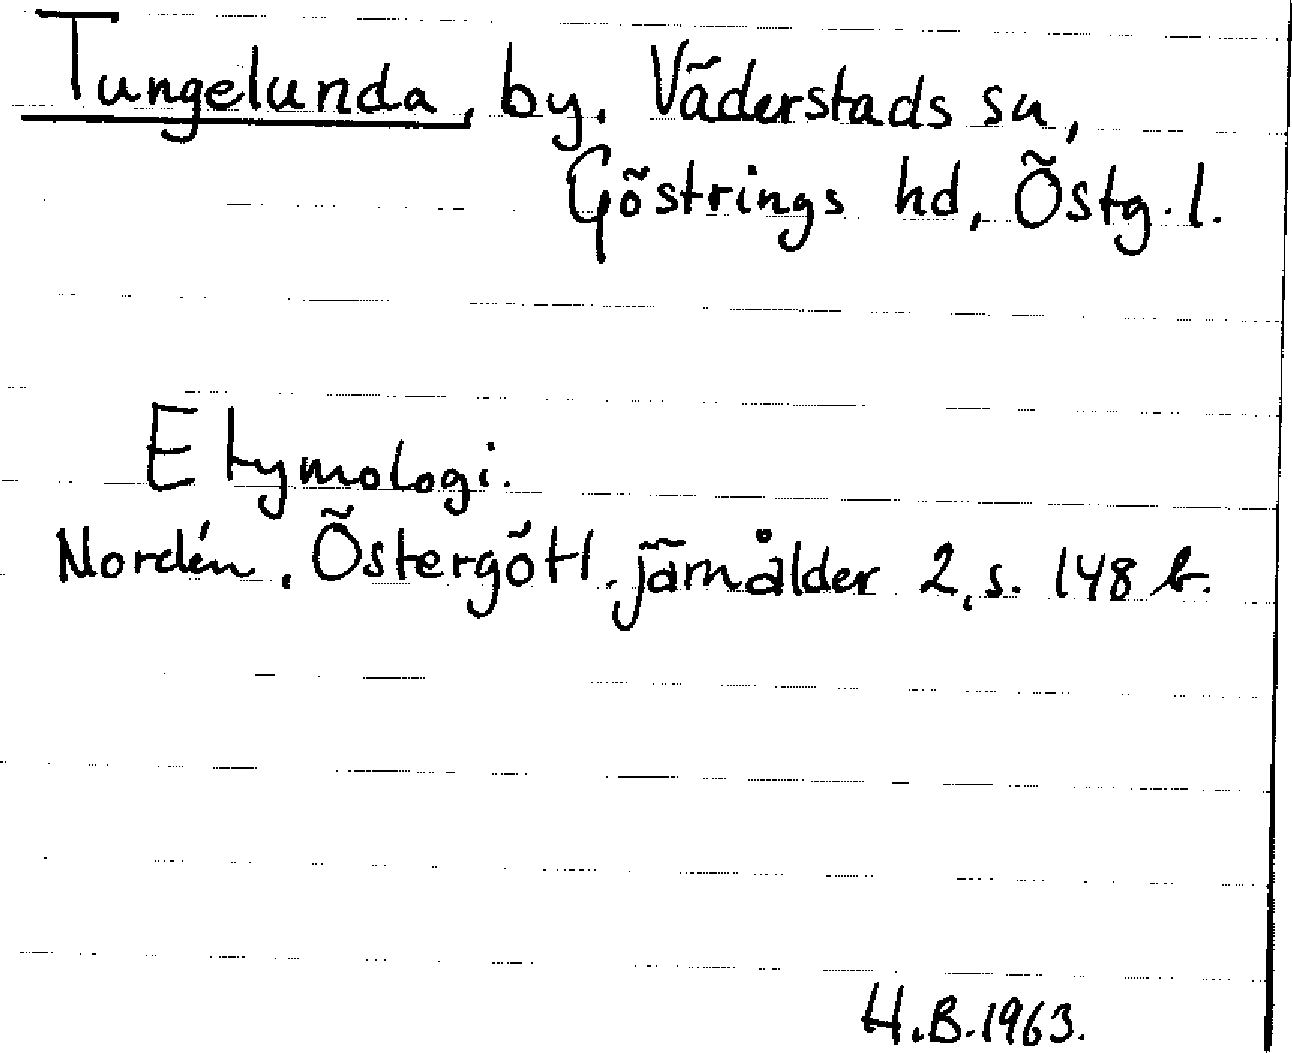 Tungelunda, by. Väderstads sn,
Göstrings hd, Östg. l.
Etymologi.
Nordén, Östergötl. järnålder 2, s. 148 b.
H.B. 1963.